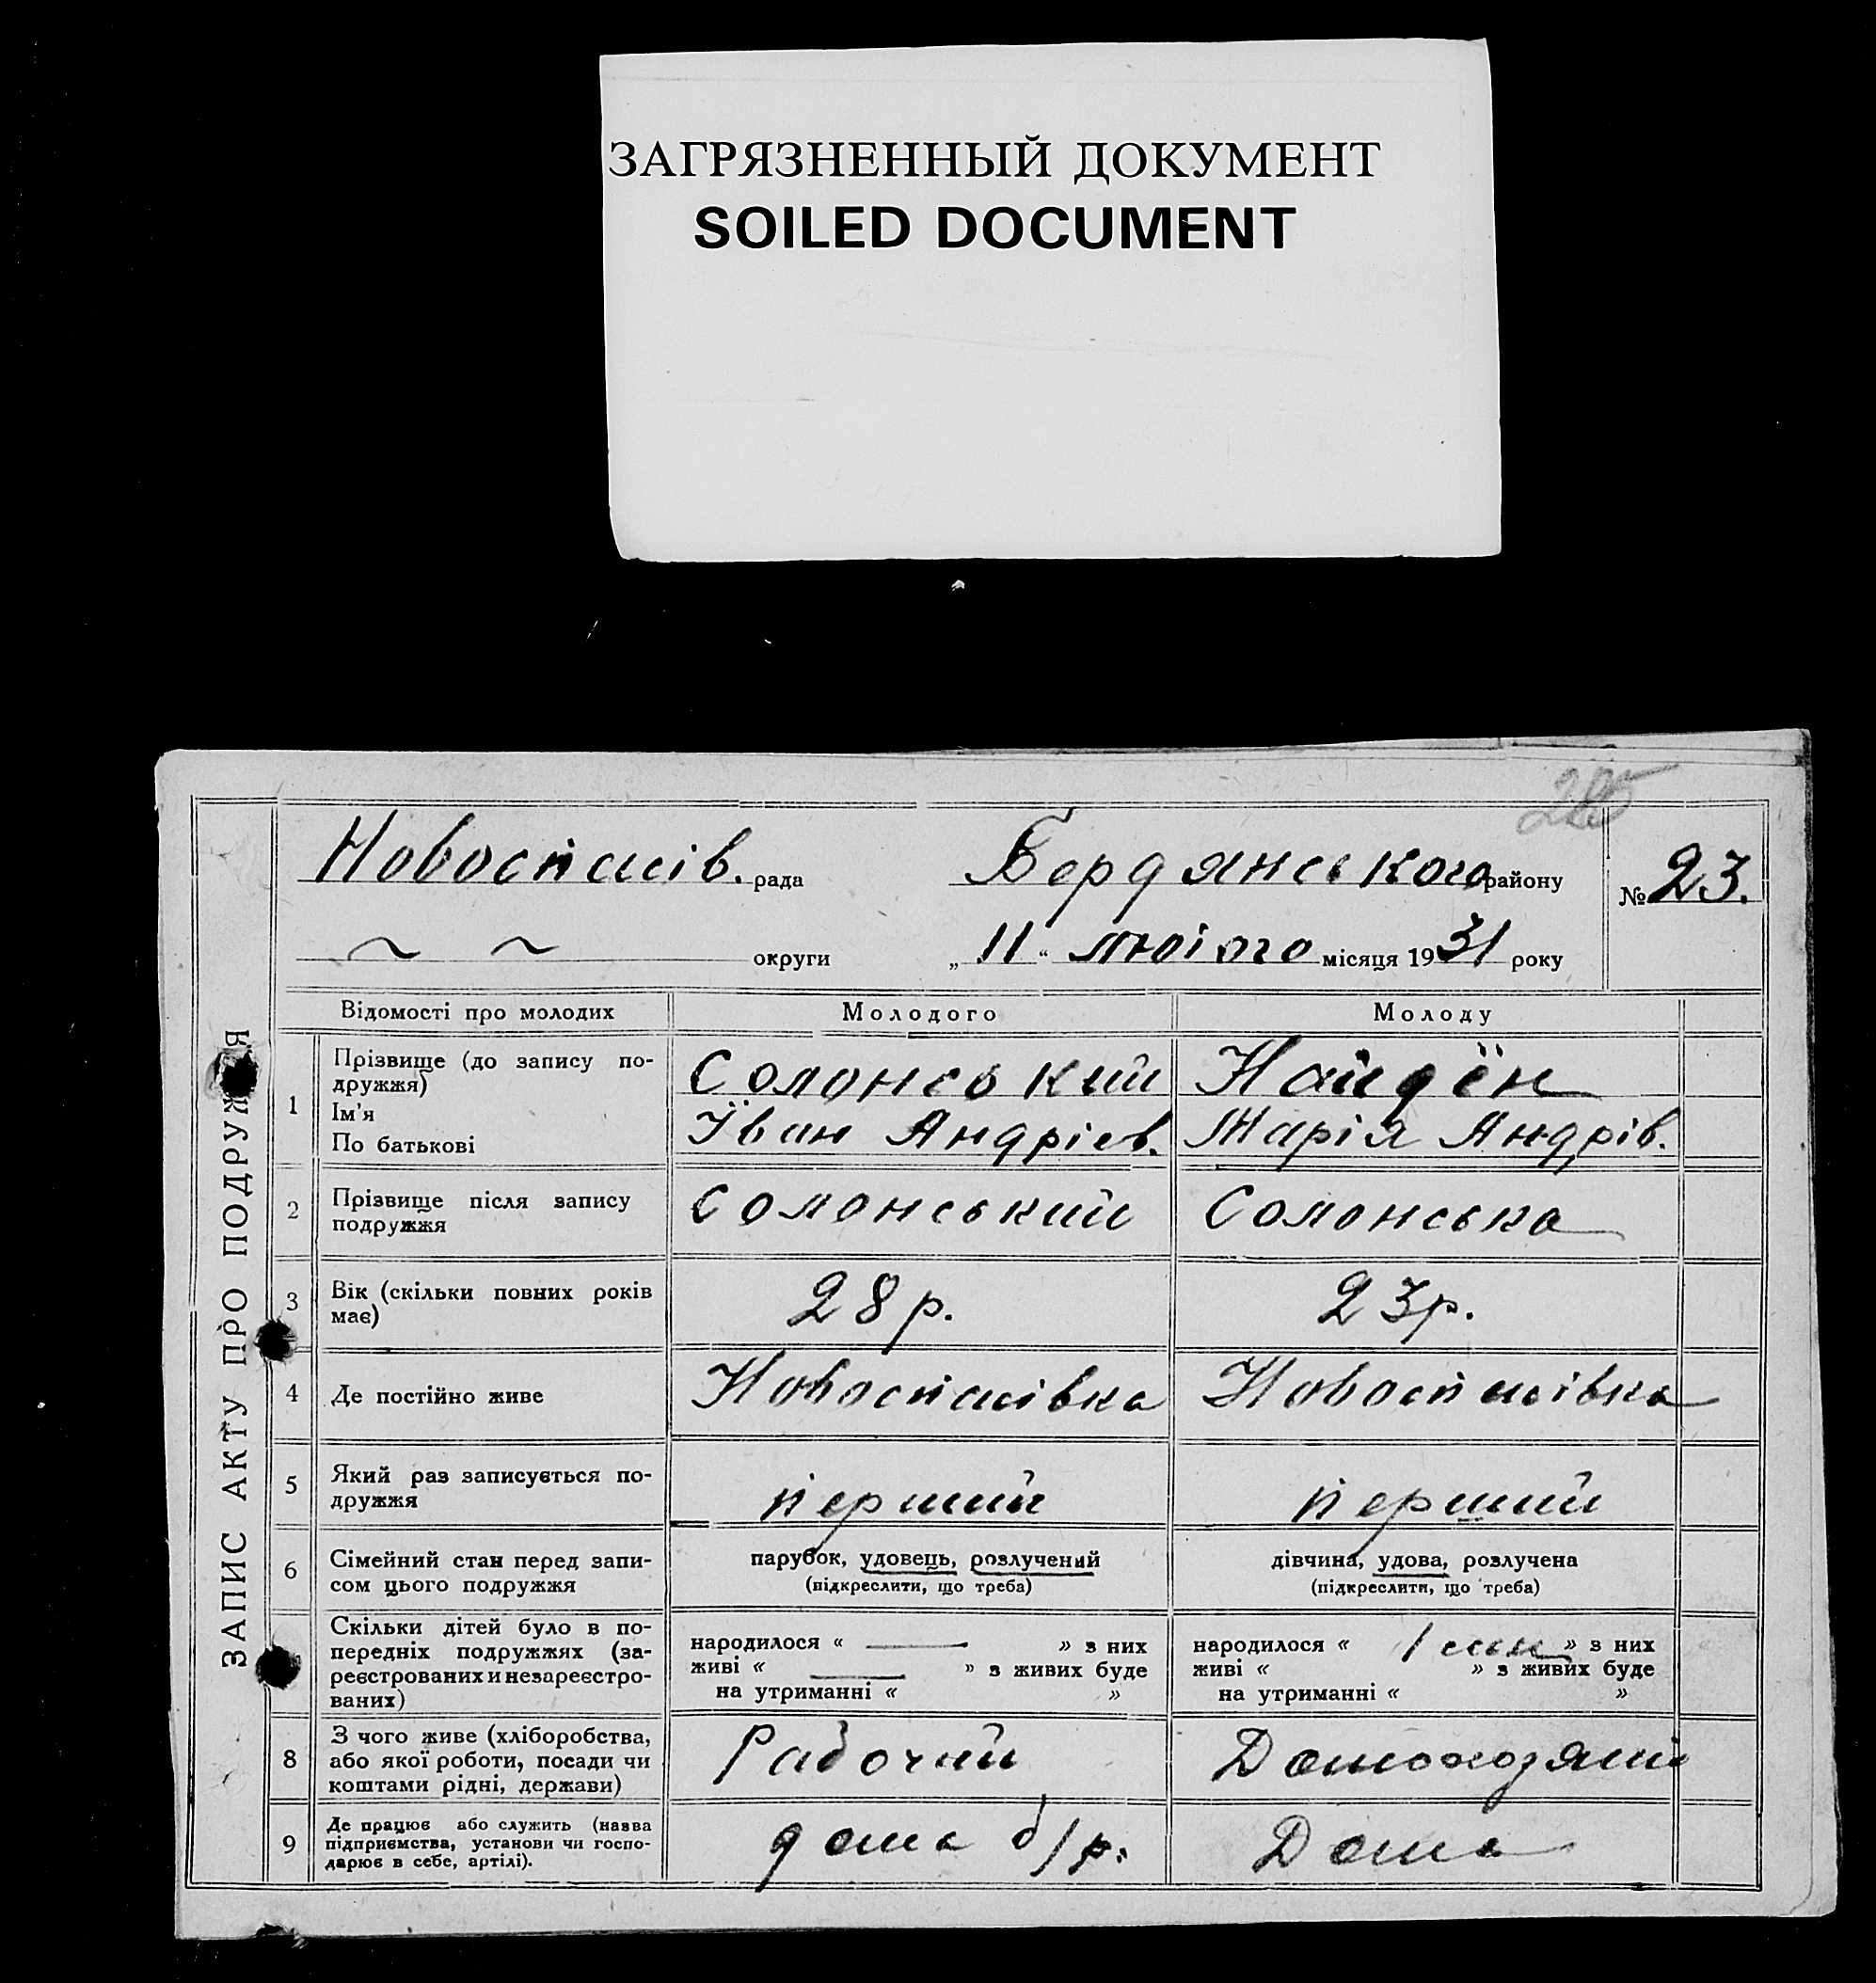 ЗАГРЯЗНЕННЫЙ ДОКУМЕНТ
SOILED DOCUMENT
285
Новоспасів. рада Бердянського району № 23.
~ ~ округи „ 11 “ лютого місяця 1931 року
ЗАПИС АКТУ ПРО ПОДРУЖЖЯ
Відомості про молодих Молодого Молоду
1 Прізвище (до запису по-
дружжя) Солонський Найдён
Ім'я
По батькові Іван Андріев. Марія Андрів.
2 Прізвище після запису
подружжя Солонський Солонська
3 Вік (скільки повних років
має) 28 р. 23 р.
4 Де постійно живе Новоспасівка Новоспасівка
5 Який раз записується по-
дружжя перший перший
6 Сімейний стан перед запи-
сом цього подружжя
парубок, удовець, розлучений дівчина, удова, розлучена
(підкреслити, що треба) (підкреслити, що треба)
Скільки дітей було в по-
передніх подружжях (за-
реєстрованих и незареєстро-
ваних)
народилося « — » з них народилося « 1 син » з них
живі « — » з живих буде живі « » з живих буде
на утриманні « » на утриманні « »
8 З чого живе (хліборобства,
або якої роботи, посади чи
коштами рідні, держави) Рабочий
9 Де працює або служить (назва
підприємства, установи чи госпо-
дарює в себе, артілі). дома б/р. Дома